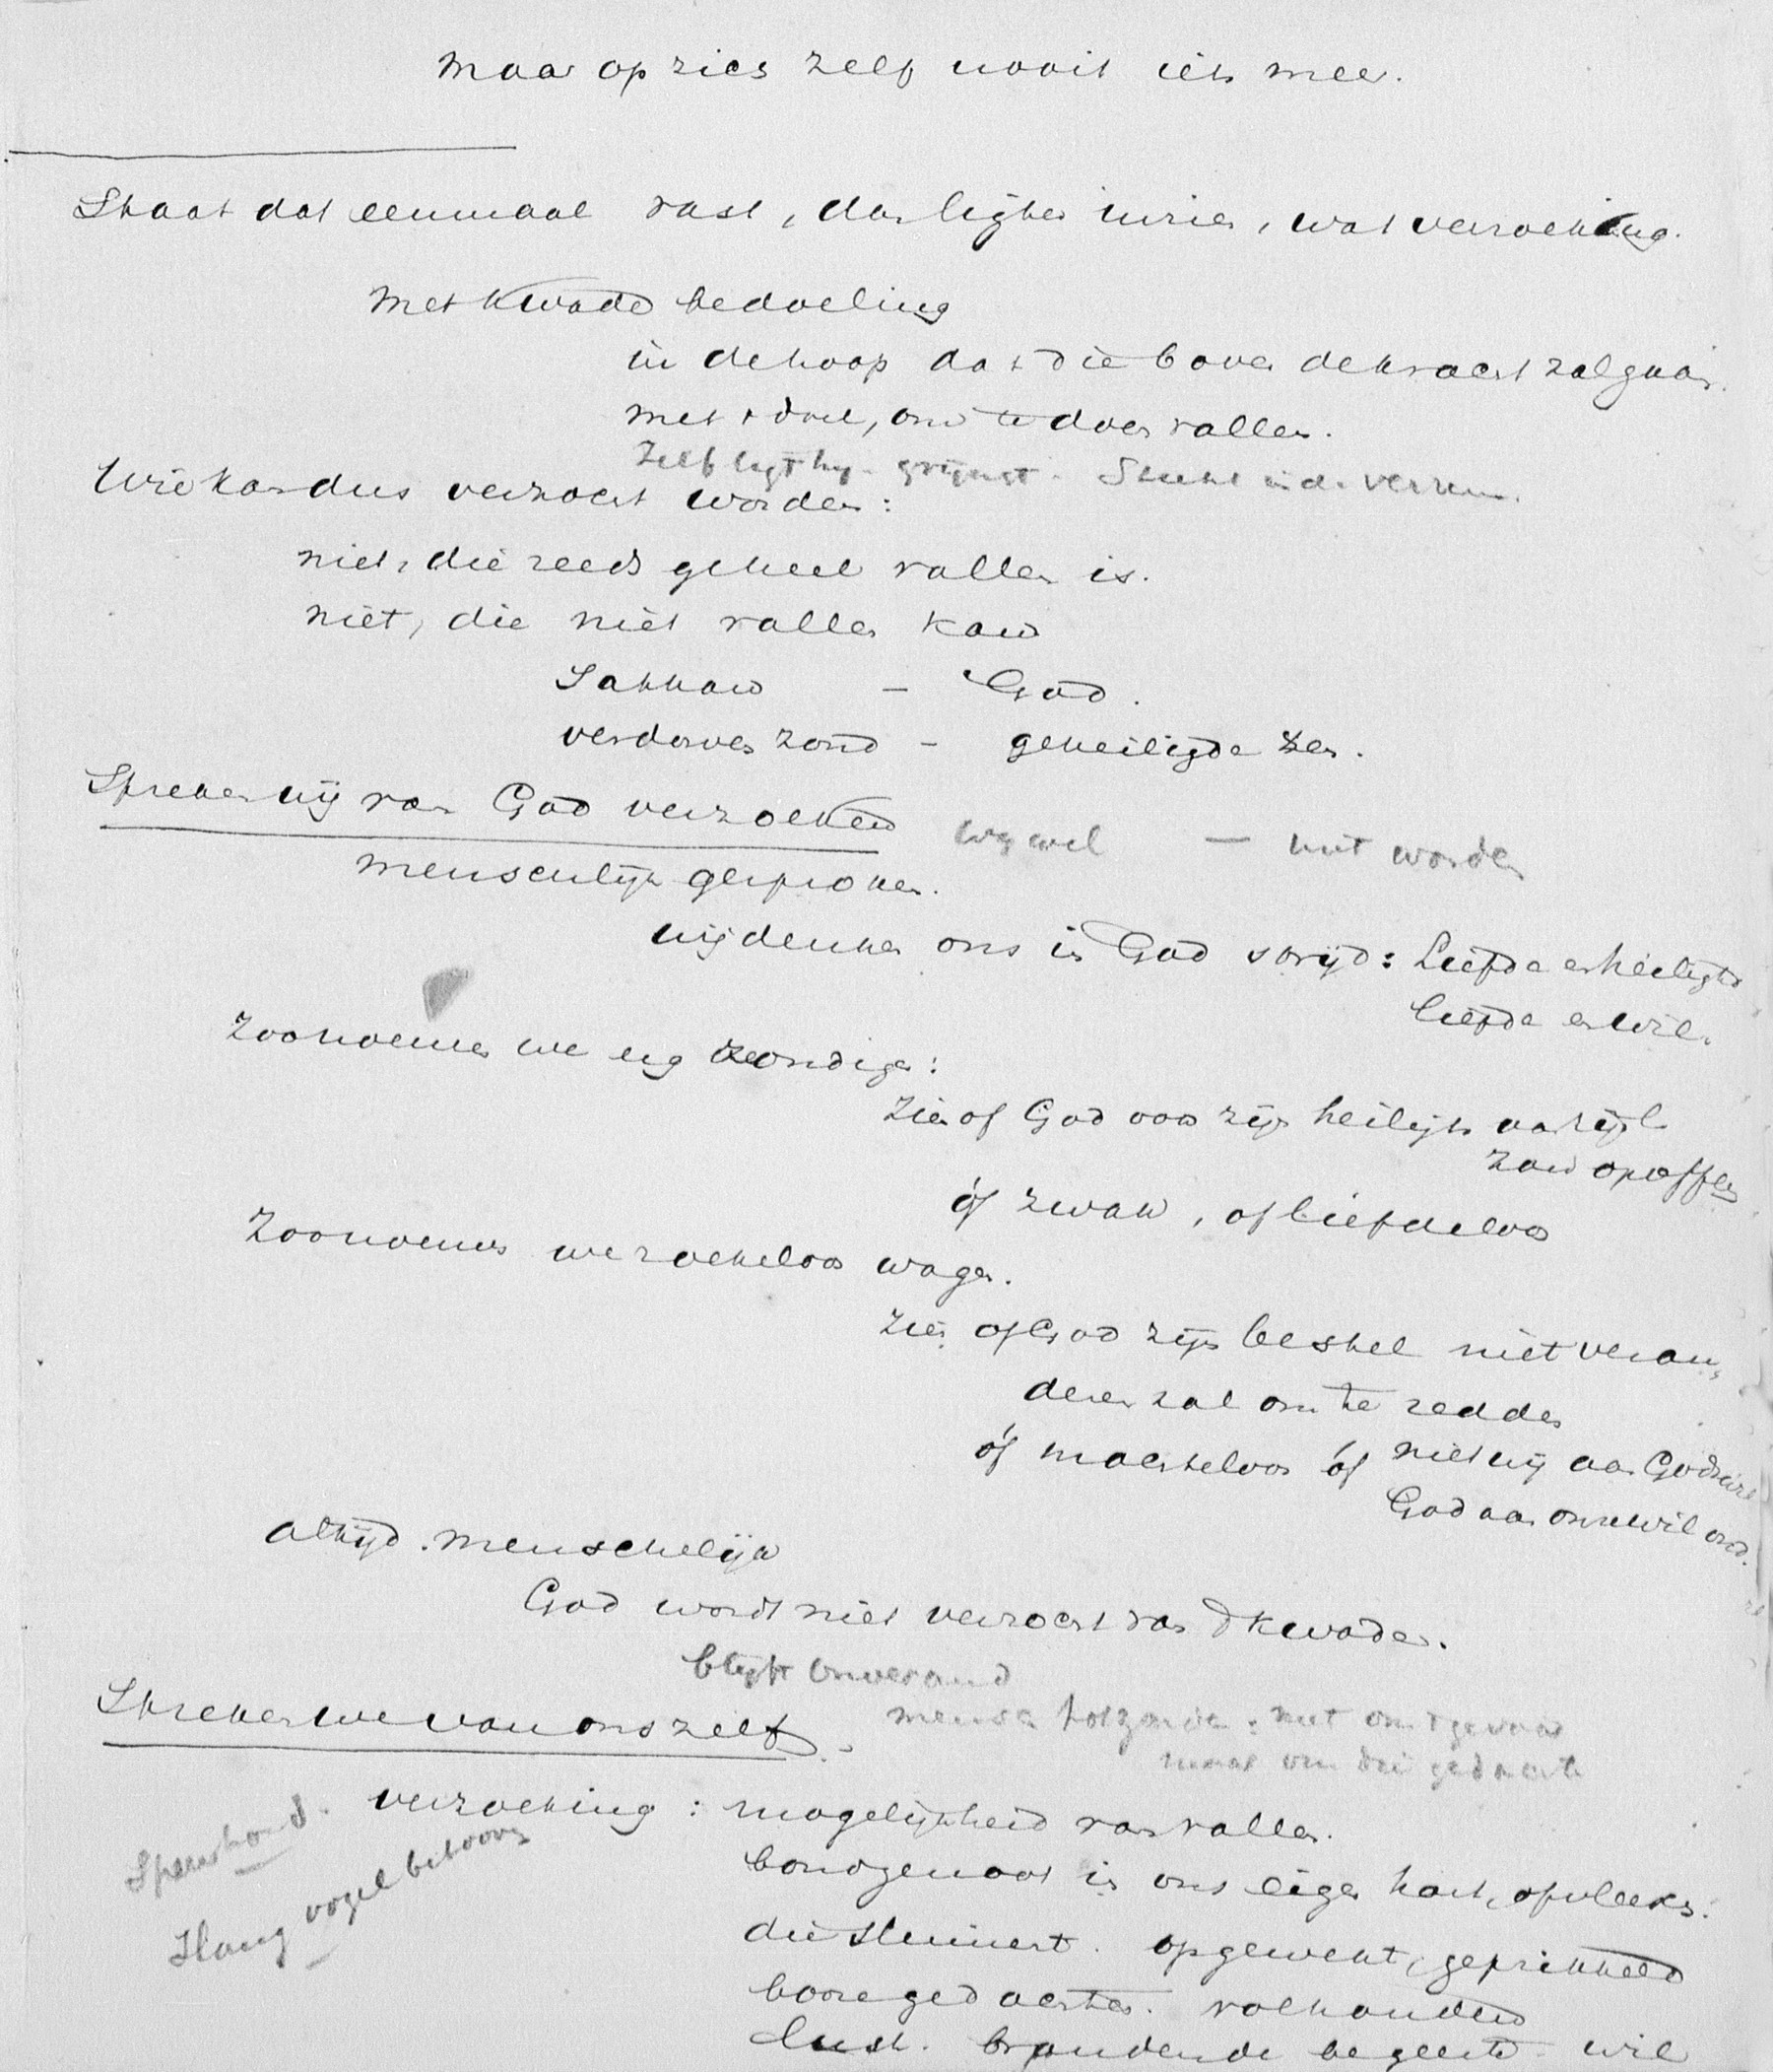 maar op zich zelf nooit iets meer.
Staat dat eenmaal vast, dan ligt er in wie, wat verzoeking.
Met kwade bedoeling
in de hoop dat die boven de kracht zal gaan.
met 't doel, om te doen vallen.
Zelf ligt hij - grijnst. Stukt in de
Wie kan dus verzocht worden:
niet, die reeds geheel vallen is.
niet, die niet vallen kan
Sathan - God.
verdorven zond - geheiligden.
Spreken wij van God verzoeken
wij wel - niet worden
menschelijk gesproken.
wij denken ons in God strijd: Liefde en heiligh
liefde en wil.
Zoo noemen we zondigen:
Zien of God voor zijn heiligh
zou opoffen
óf zwak, of liefdeloos
Zoo noemen we roekeloos wagen.
Zien of God zijn bestel niet veran,
deren zal om te redden
óf machteloos óf niet wij aan Gods wil
God aan onze wil ond.
altijd menschelijk
God wordt niet verzocht van 't kwade.
blijft onverand
Spreken we van ons zelf.
mensch : niet om 't gevaar
maar om die gedachte
verzoeking: mogelijkheid van vallen.
Speurhond.
Slang vogel betoover
bondgenoot in ons eigen hart, of vleesch.
die sluimert. opgewekt, geprikkeld
booze gedachten. volhouden
lust. brandende begeerte - wil